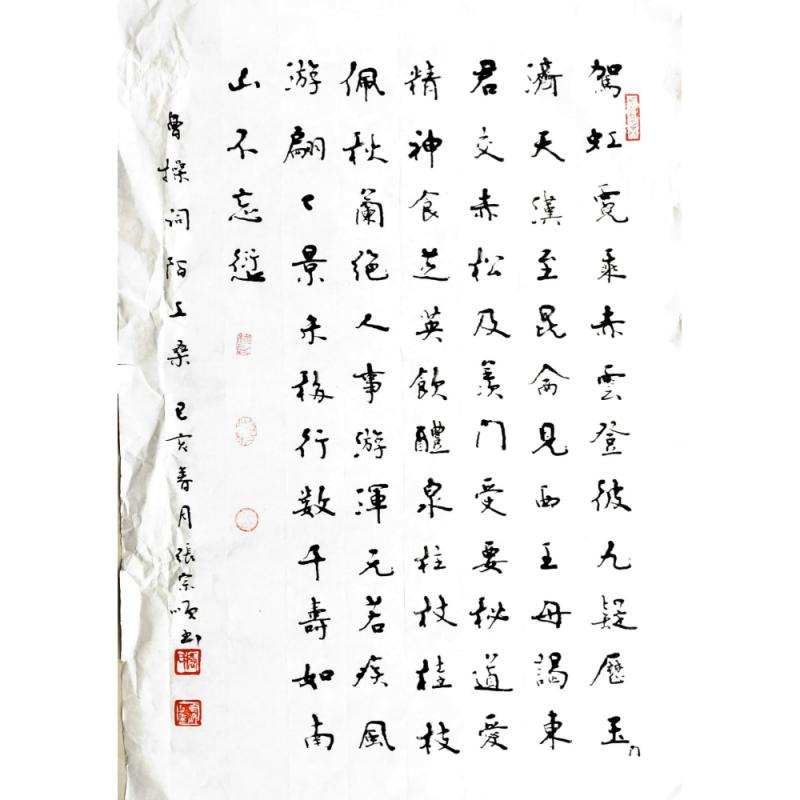 駕虹霓乘赤雲登彼九疑歷玉门
濟天漢至昆侖見西王母謁東
君交赤松及羨門受要秘道愛
精神食芝英飲醴泉柱杖桂枝
佩秋蘭絕人事游渾元若疾風
游翩々景未移行数千壽如南
山不忘愆
曹操词陌上桑 己亥春月張宗順书